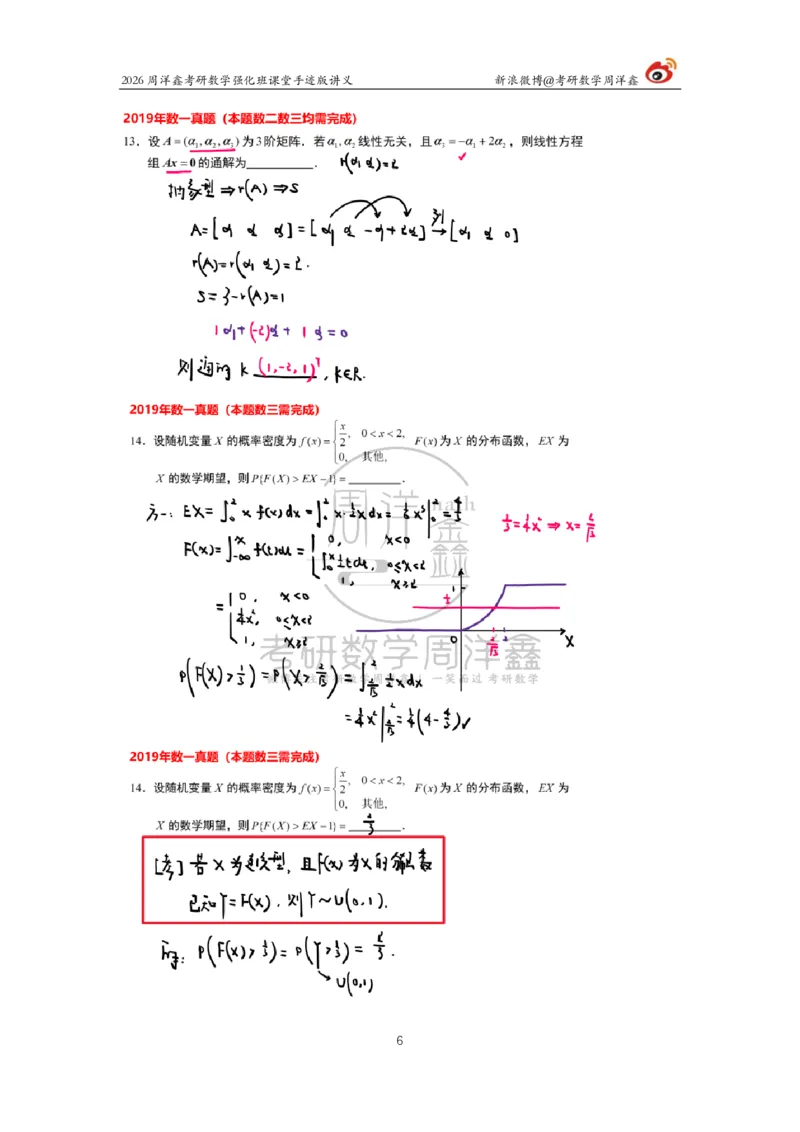 2026周洋鑫考研数学强化班课堂手迹版讲义 新浪微博@考研数学周洋鑫
2019年数一真题（本题数二数三均需完成）
13．设A=(α₁,α₂,α₃)为3阶矩阵．若α₁,α₂线性无关，且α₃=−α₁+2α₂，则线性方程
组Ax=0的通解为________． r(α₁ α₂)=2
抽象型⇒r(A)⇒S
A=[α₁ α₂ α₃]=[α₁ α₂ -α₁+2α₂] 列→ [α₁ α₂ 0]
r(A)=r(α₁ α₂)=2.
S=3-r(A)=1
1α₁+(-2)α₂+1α₃=0
则通解为 k (1,-2,1)ᵀ, k∈R.
2019年数一真题（本题数三需完成）
14．设随机变量X的概率密度为f(x)={x/2, 0<x<2, 0, 其他, F(x)为X的分布函数，EX为
X的数学期望，则P{F(X)>EX−1}=________．
方一: EX=∫₀² x f(x)dx=∫₀² x·½x dx=⅙x³|₀²=4/3
⅓=¼x² ⇒ x=2/√3
F(x)=∫₋∞ˣ f(t)dt={0, x<0
∫₀ˣ ½t dt, 0≤x<2
1, x≥2
={0, x<0
¼x², 0≤x<2
1, x≥2
1
0 2/√3 2 X
P(F(X)>⅓)=P(X>2/√3)=∫_{2/√3}² ½x dx
=¼x²|_{2/√3}²=¼(4-4/3)✓
周洋鑫
math
考研数学周洋鑫
一笑而过 考研数学
2019年数一真题（本题数三需完成）
14．设随机变量X的概率密度为f(x)={x/2, 0<x<2, 0, 其他, F(x)为X的分布函数，EX为
X的数学期望，则P{F(X)>EX−1}= 2/3 ．
若X为连续型, 且F(x)为X的分布函数
已知Y=F(X), 则Y~U(0,1).
P(F(X)>⅓)=P(Y>⅓)=2/3.
U(0,1)
6